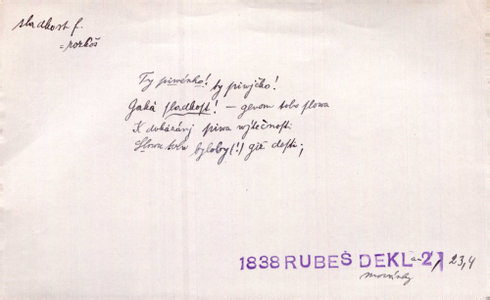 sladkost f.
= rozkoš
Ty piwénko! ty piwjčko!
Gaká sladkost! — genom toto slowa
K dokázánj piwa wýtečnosti
Slowo toto byloby (!) giž dosti;
1838 RUBEŠ DEKL 2/ 23,4